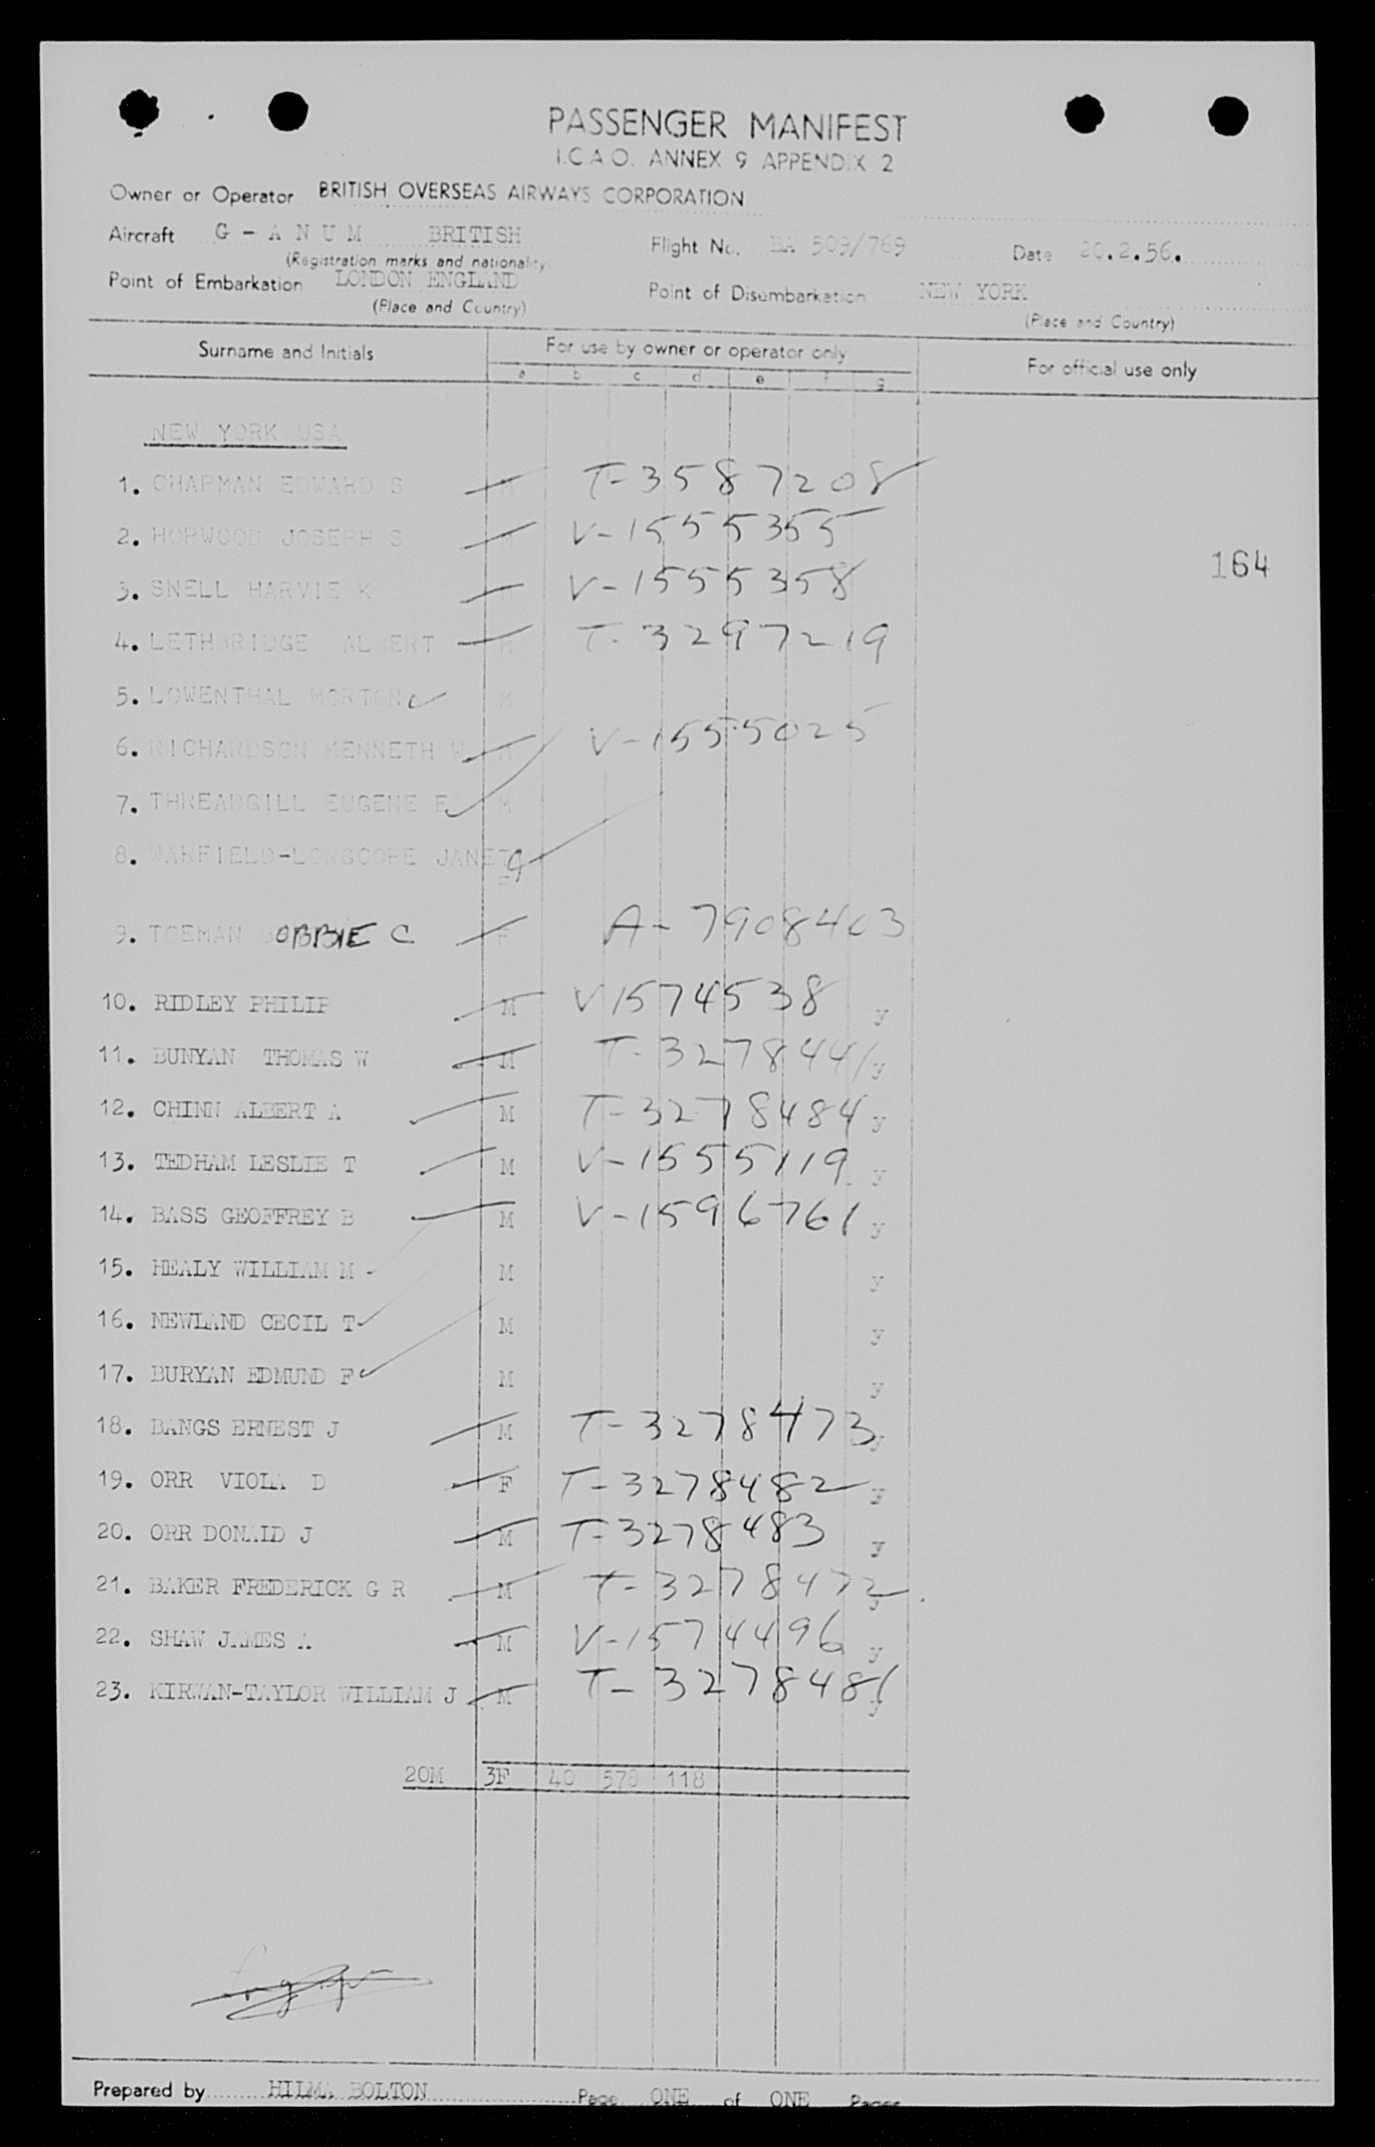 PASSENGER MANIFEST
I.C.A.O. ANNEX 9 APPENDIX 2
Owner or Operator BRITISH OVERSEAS AIRWAYS CORPORATION
Aircraft G - A N U M BRITISH Flight No. BA 509/769 Date 20.2.56.
(Registration marks and nationality)
Point of Embarkation LONDON ENGLAND Point of Disembarkation NEW YORK
(Place and Country) (Place and Country)
Surname and Initials For use by owner or operator only For official use only
a b c d e f g
NEW YORK USA
1. CHAPMAN EDWARD S M T-3587208
2. HORWOOD JOSEPH S M V-1555355
164
3. SNELL HARVIE K V-1555358
4. LETHBRIDGE ALBERT M T-3297219
5. LOWENTHAL MORTON M
6. RICHARDSON KENNETH W M V-1555025
7. THREADGILL EUGENE F M
8. WARFIELD-LONGCOPE JANET
9. TOEMAN BOBBIE C F A-7908403
10. RIDLEY PHILIP M V1574538 y
11. BUNYAN THOMAS W M T-3278441 y
12. CHINN ALBERT A M T-3278484 y
13. TEDHAM LESLIE T M V-1555119 y
14. BASS GEOFFREY B M V-1596761 y
15. HEALY WILLIAM M - M y
16. NEWLAND CECIL T M y
17. BURYAN EDMUND F M y
18. BANGS ERNEST J M T-3278473 y
19. ORR VIOLA D F T-3278482 y
20. ORR DONALD J M T-3278483 y
21. BAKER FREDERICK G R M T-3278472 y
22. SHAW JAMES A M V-1574496 y
23. KIRWAN-TAYLOR WILLIAM J M T-3278481 y
20M 3F 40 578 118
Prepared by HILMA BOLTON Page ONE of ONE Pages